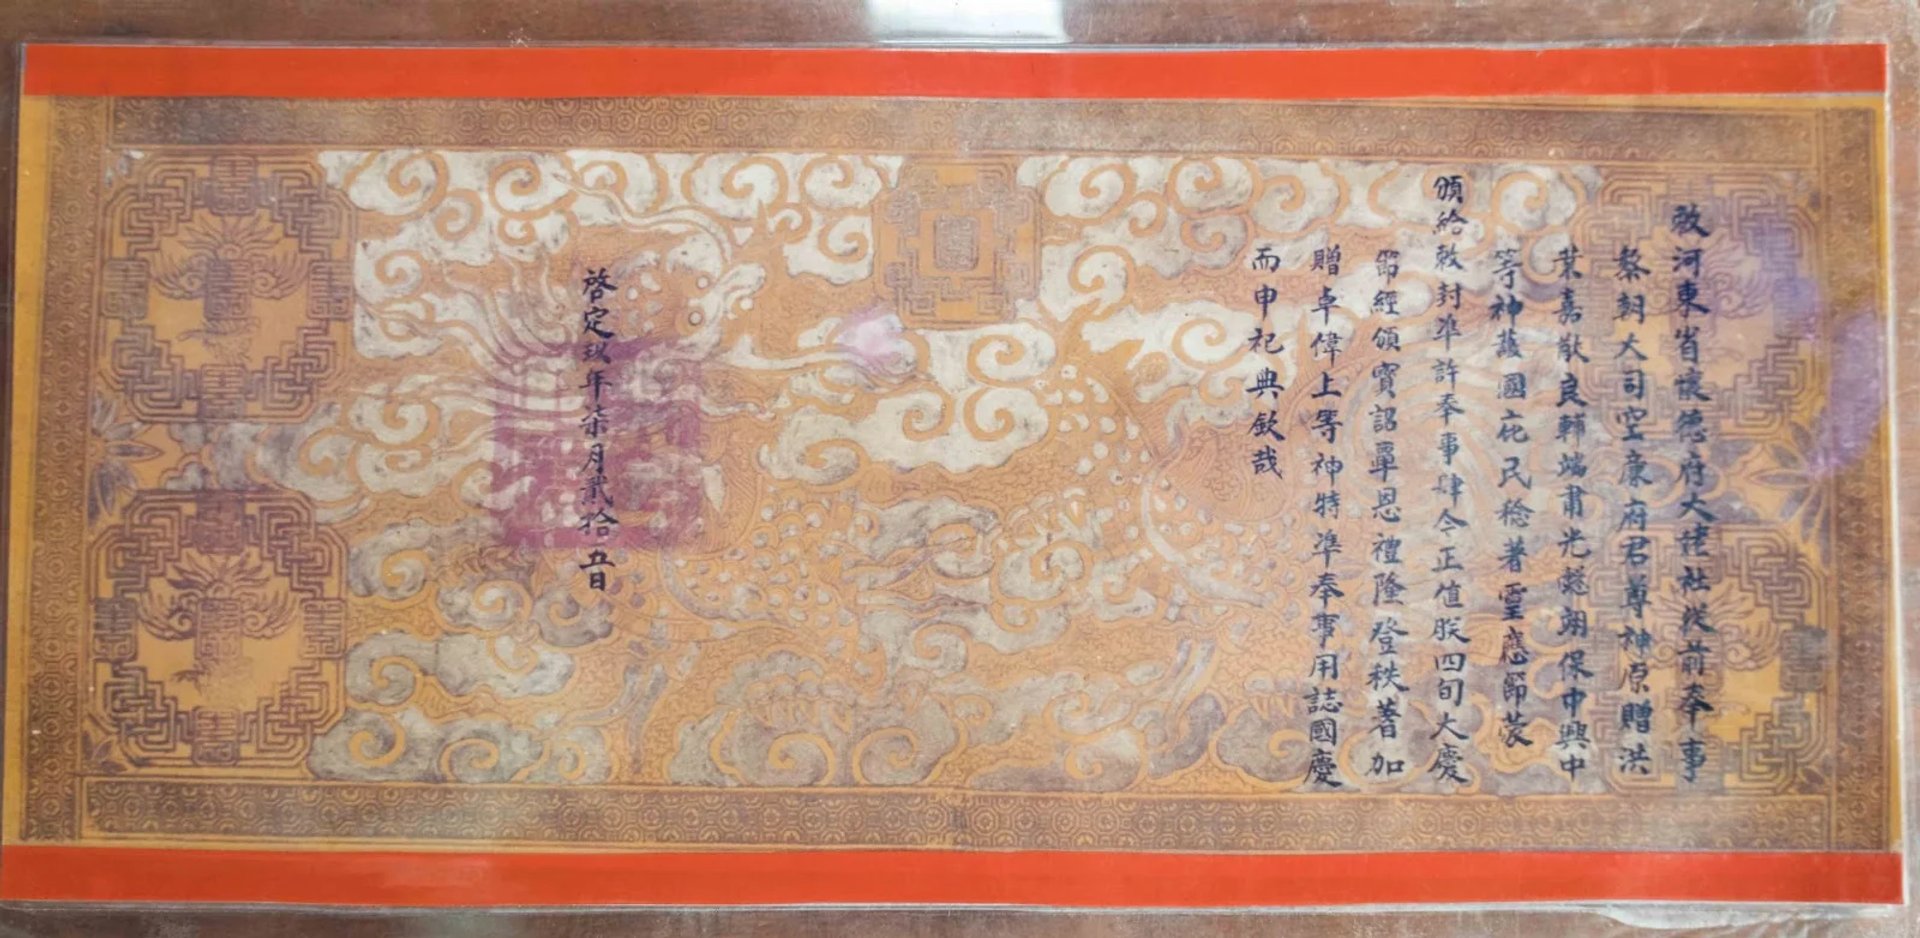 敕河東省懷德府大㨗社從前奉事
黎朝大司空康府君尊神原贈洪
業嘉猷良輔端肅光懿翊保中興中
等神護國庇民稔著霊應節蒙
頒給敕封準許奉事肆今正值朕四旬大慶
節經頒寶詔覃恩禮隆登秩著加
贈卓偉上等神特準奉事用誌國慶
而申祀典欽哉
啓定玖年柒月貳拾五日